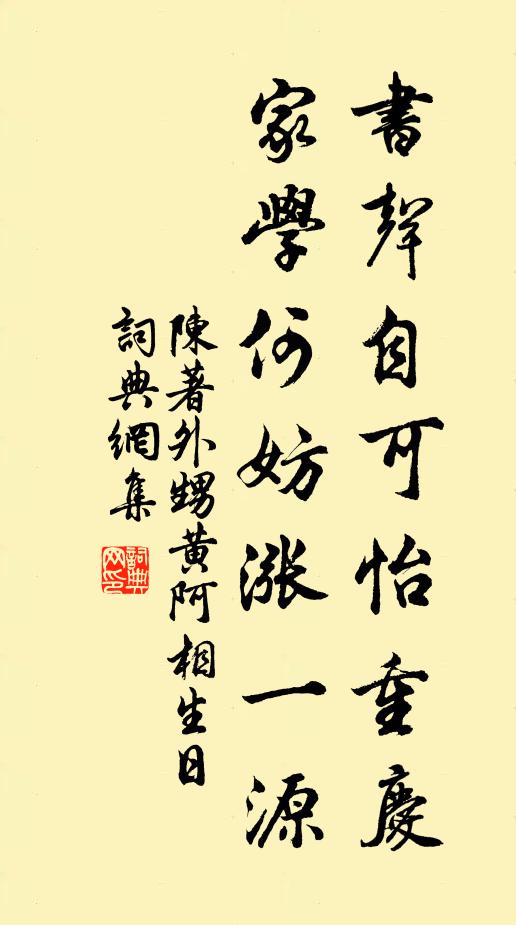 書聲自可怡重慶
家學何妨漲一源
陳著外甥黄阿相生日
詞典網集
詞典网印